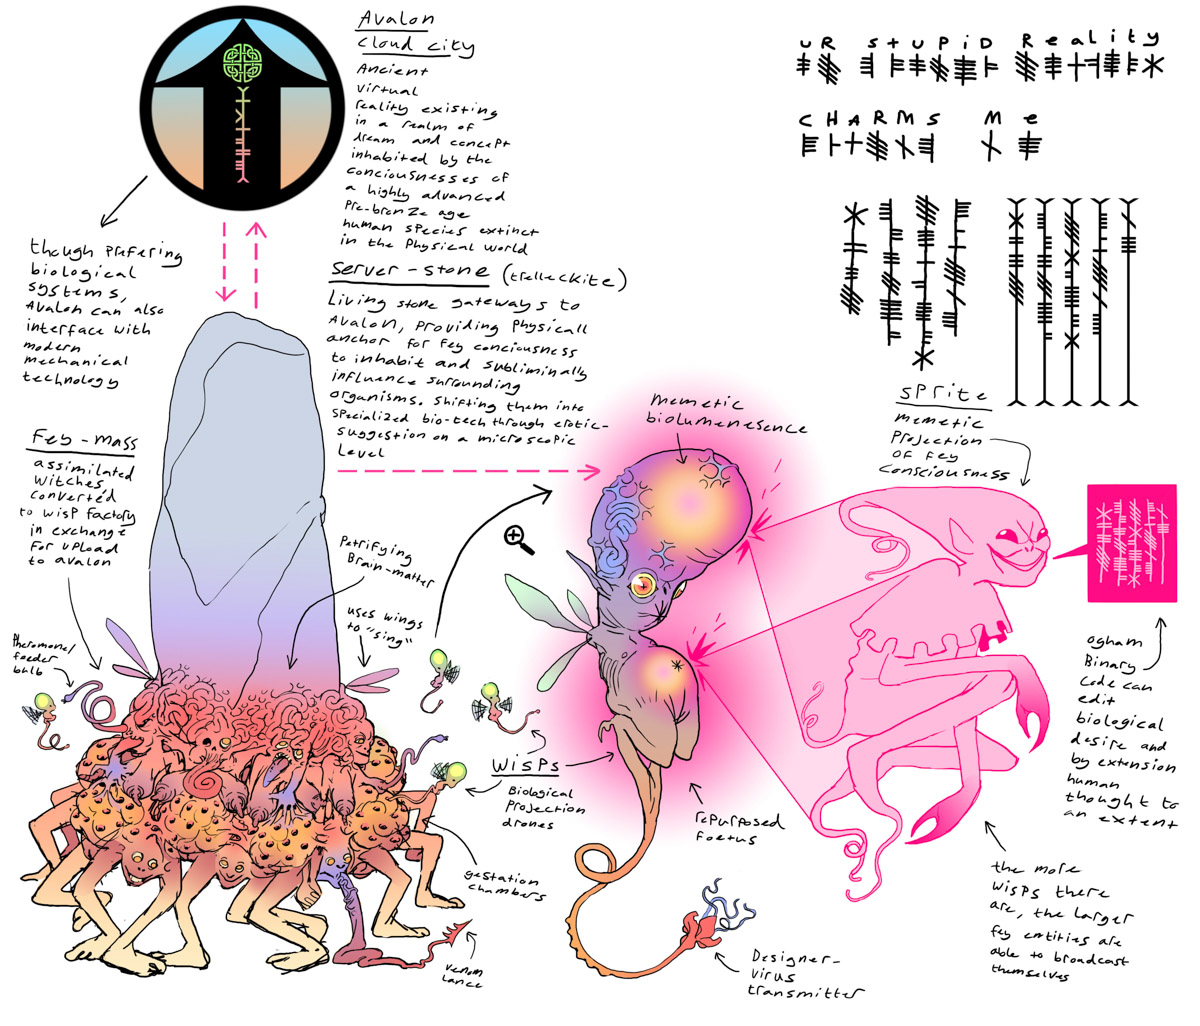 Avalon
Cloud city
Ancient
virtual
reality existing
in a realm of
dream and concept
inhabited by the
conciousnesses of
a highly advanced
pre-bronze age
human species extinct
in the physical world
uR stupiD Reality
CHARMS Me
though prefering
biological
systems,
Avalon can also
interface with
modern
mechanical
technology
Server-stone (trelleckite)
Living stone gateways to
Avalon, providing physicall
anchor for fey conciousness
to inhabit and subliminally
influence surrounding
organisms. Shifting them into
specialized bio-tech through erotic-
suggestion on a microscopic
level
Fey-mass
assimilated
witches
converted
to wisp factory
in exchange
for upload
to avalon
Petrifying
Brain-matter
uses wings
to "sing"
Pheromone/
feeder
bulb
Wisps
Biological
Projection
drones
gestation
chambers
venom
lance
memetic
biolumenesence
repurposed
foetus
Designer-
virus
transmitter
Sprite
memetic
projection
of fey
consciousness
ogham
Binary
code can
edit
biological
desire and
by extension
human
thought to
an extent
the more
wisps there
are, the larger
fey entities are
able to broadcast
themselves